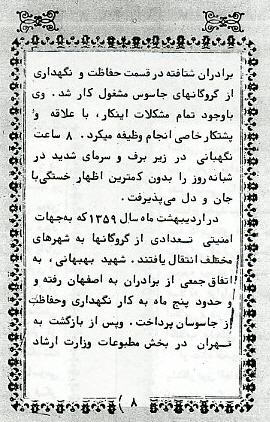 برادران شتافته در قسمت حفاظت و نگهداری
از گروگانهای جاسوس مشغول کار شد. وی
باوجود تمام مشکلات اینکار، با علاقه و
پشتکار خاصی انجام وظیفه میکرد. ۸ ساعت
نگهبانی در زیر برف و سرمای شدید در
شبانه روز را بدون کمترین اظهار خستگی با
جان و دل می‌پذیرفت.
در اردیبهشت ماه سال ۱۳۵۹ که به‌جهات
امنیتی تعدادی از گروگانها به شهرهای
مختلف انتقال یافتند. شهید بهبهانی، به
اتفاق جمعی از برادران به اصفهان رفته و
و حدود پنج ماه به کار نگهداری وحفاظت
از جاسوسان پرداخت. وپس از بازگشت به
تهران در بخش مطبوعات وزارت ارشاد
۸